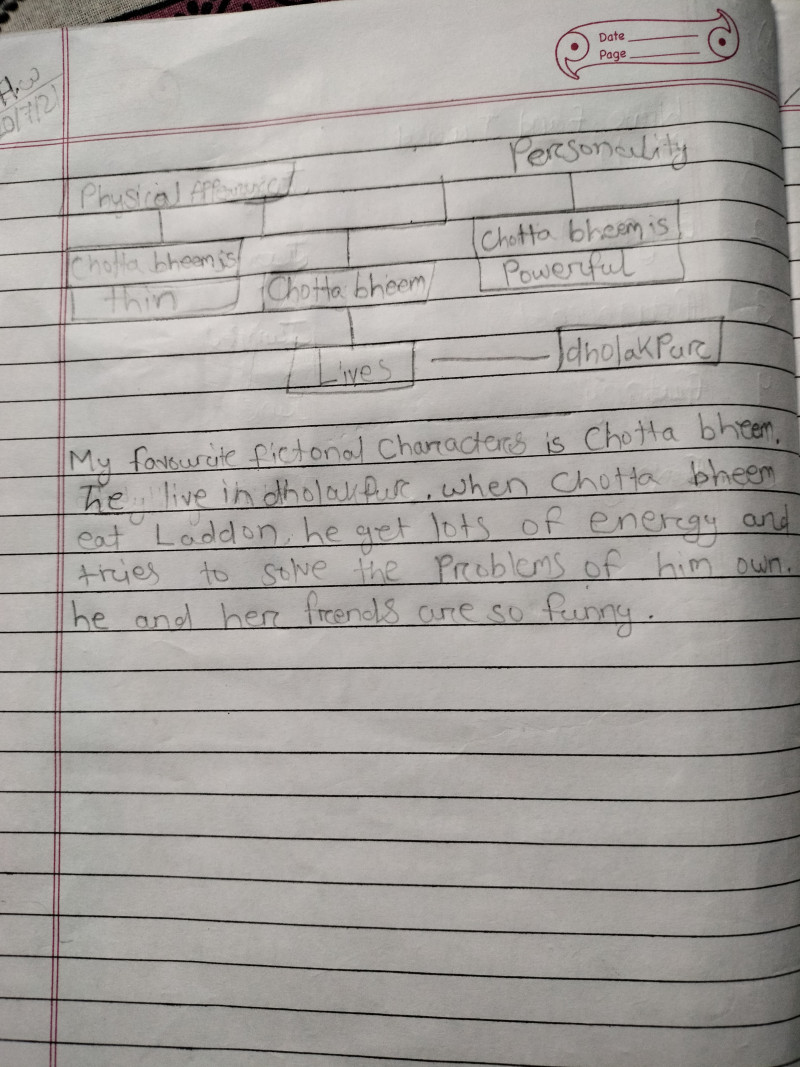 Date
Page
H.W
Personality
Physical
Chotta bheem is
Powerful
Chotta bheem is
thin
Chotta bheem
Lives
dholakpur
My favourite fictonal Characters is Chotta bheem.
He live in dholakpur. when Chotta bheem
eat Laddon. he get lots of energy and
tries to solve the Problems of him own.
he and her freends are so funny.